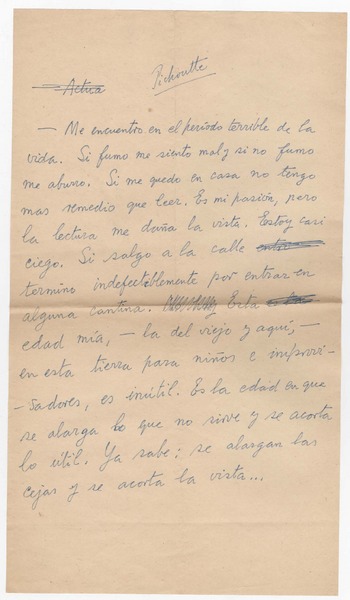 Actua
Pichoutte
— Me encuentro en el período terrible de la
vida. Si fumo me siento mal y si no fumo
me aburo. Si me quedo en casa no tengo
mas remedio que leer. Es mi pasión, pero
la lectura me daña la vista. Estoy casi
ciego. Si salgo a la calle
termino indefectiblemente por entrar en
alguna cantina. Esta
edad mía, — la del viejo y aquí, —
en esta tierra para niños e improvi-
- sadores, es inútil. Es la edad en que
se alarga lo que no sirve y se acorta
lo útil. Ya sabe: se alargan las
cejas y se acorta la vista...